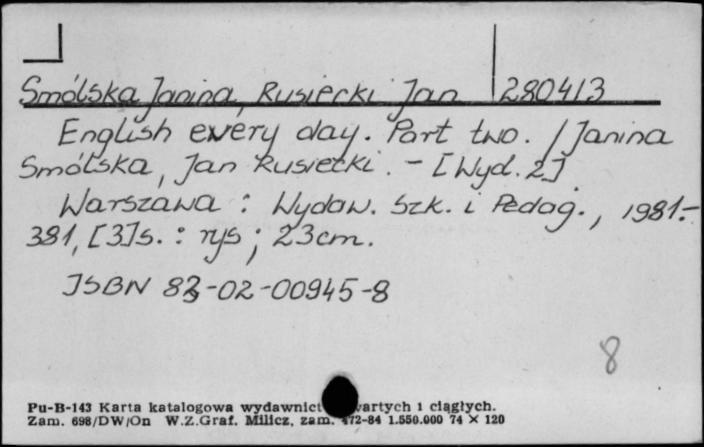 Smólska Janina, Rusiecki Jan 280413
English every day. Part two. / Janina
Smólska, Jan Rusiecki. - [Wyd. 2]
Warszawa : Wydaw. Szk. i Pedag., 1981.-
381, [3]s. : rys ; 23cm.
ISBN 83-02-00945-8
8
Pu-B-143 Karta katalogowa wydawnict wartych i ciągłych.
Zam. 698/DW/On W.Z.Graf. Milicz, zam. 472-84 1.550.000 74 × 120